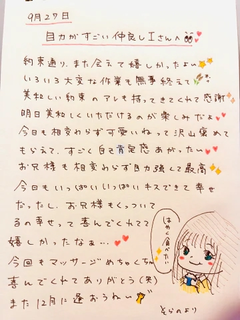 9月27日
目力がすごい仲良しIさんへ
約束通り、また会えて嬉しかったよ
いろいろ大変な作業も無事終えて
美味しい約束のアレも持ってきてくれて感謝
明日美味しくいただけるのが楽しみだよ
今日も相変わらず可愛いねって沢山褒めて
もらえて、すごく自己肯定感あがったぃ
お兄様も相変わらず目力強くて最高
今日もいっぱいいっぱいキスできて幸せ
だったし、お兄様もくっついて
るの幸せって喜んでくれてて
嬉しかったなぁ…
今回もマッサージめちゃくちゃ
喜んでくれてありがとう(笑)
また12月に逢おうねぃ
はやく食べたい
そらのより